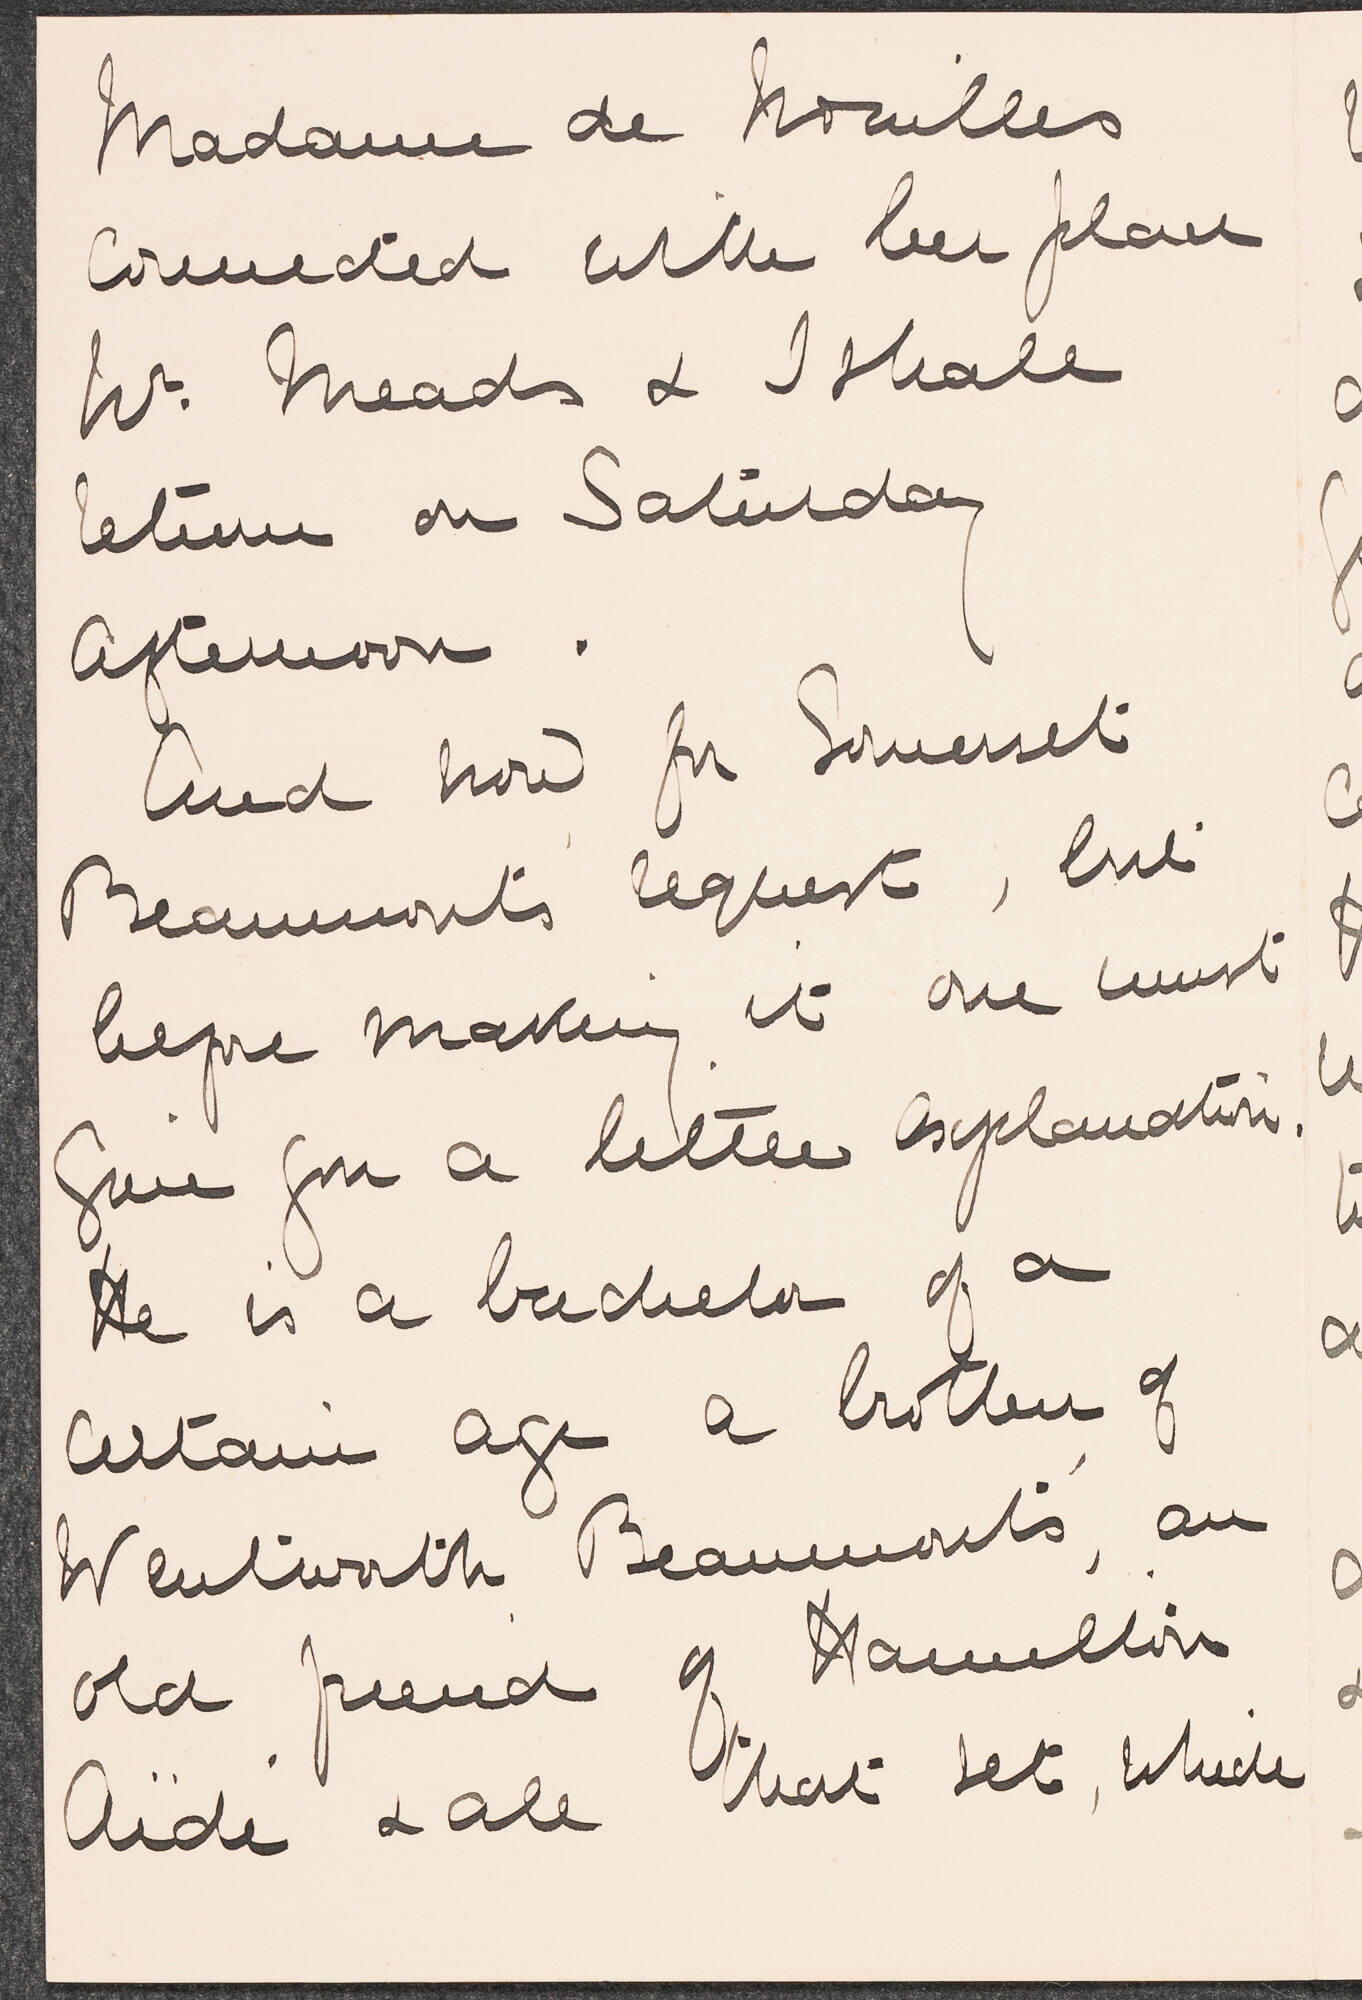 Madame de Noailles
connected with her plan
for Meads & I shall
return on Saturday
afternoon.
And now for Somerset
Beaumont's request, but
before making it one must
give you a little explanation.
He is a bachelor of a
certain age a brother of
Wentworth Beaumont's, an
old friend of Hamilton
Aïdé & all that set, which